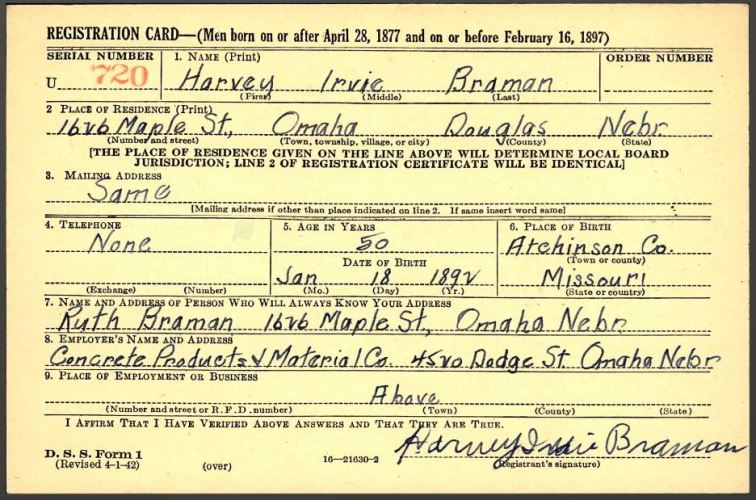 REGISTRATION CARD—(Men born on or after April 28, 1877 and on or before February 16, 1897)
SERIAL NUMBER 1. NAME (Print) ORDER NUMBER
U 720 Harvey Irvie Braman
(First) (Middle) (Last)
2 PLACE OF RESIDENCE (Print)
1626 Maple St., Omaha Douglas Nebr.
(Number and street) (Town, township, village, or city) (County) (State)
[THE PLACE OF RESIDENCE GIVEN ON THE LINE ABOVE WILL DETERMINE LOCAL BOARD
JURISDICTION; LINE 2 OF REGISTRATION CERTIFICATE WILL BE IDENTICAL]
3. MAILING ADDRESS
Same
[Mailing address if other than place indicated on line 2. If same insert word same]
4. TELEPHONE 5. AGE IN YEARS 6. PLACE OF BIRTH
None 50 Atchinson Co.
DATE OF BIRTH (Town or county)
Jan 18 1892 Missouri
(Exchange) (Number) (Mo.) (Day) (Yr.) (State or country)
7. NAME AND ADDRESS OF PERSON WHO WILL ALWAYS KNOW YOUR ADDRESS
Ruth Braman 1626 Maple St., Omaha Nebr.
8. EMPLOYER'S NAME AND ADDRESS
Concrete Products & Material Co. 4520 Dodge St. Omaha Nebr.
9. PLACE OF EMPLOYMENT OR BUSINESS
Above
(Number and street or R. F. D. number) (Town) (County) (State)
I AFFIRM THAT I HAVE VERIFIED ABOVE ANSWERS AND THAT THEY ARE TRUE.
Harvey Irvie Braman
D. S. S. Form 1
(Revised 4-1-42) (over) 16—21630-2 (Registrant's signature)